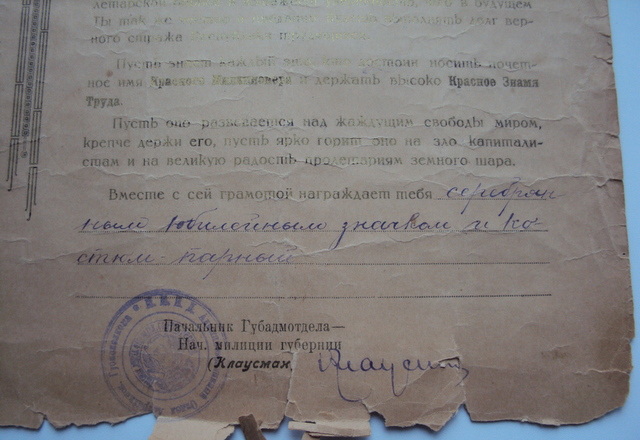 летарской
в будущем
Ты так же выполнять долг вер-
ного стража
Пусть знает каждый достоин носить почет-
ное имя Красного Милиционера и держать высоко Красное Знамя
Труда.
Пусть оно развевается над жаждущим свободы миром,
крепче держи его, пусть ярко горит оно на зло капитали-
стам и на великую радость пролетариям земного шара.
Вместе с сей грамотой награждает тебя серебрян
ным юбилейным значком и ко-
стюм-парный
Начальник Губадмотдела—
Нач. милиции губернии
(Клаусман)